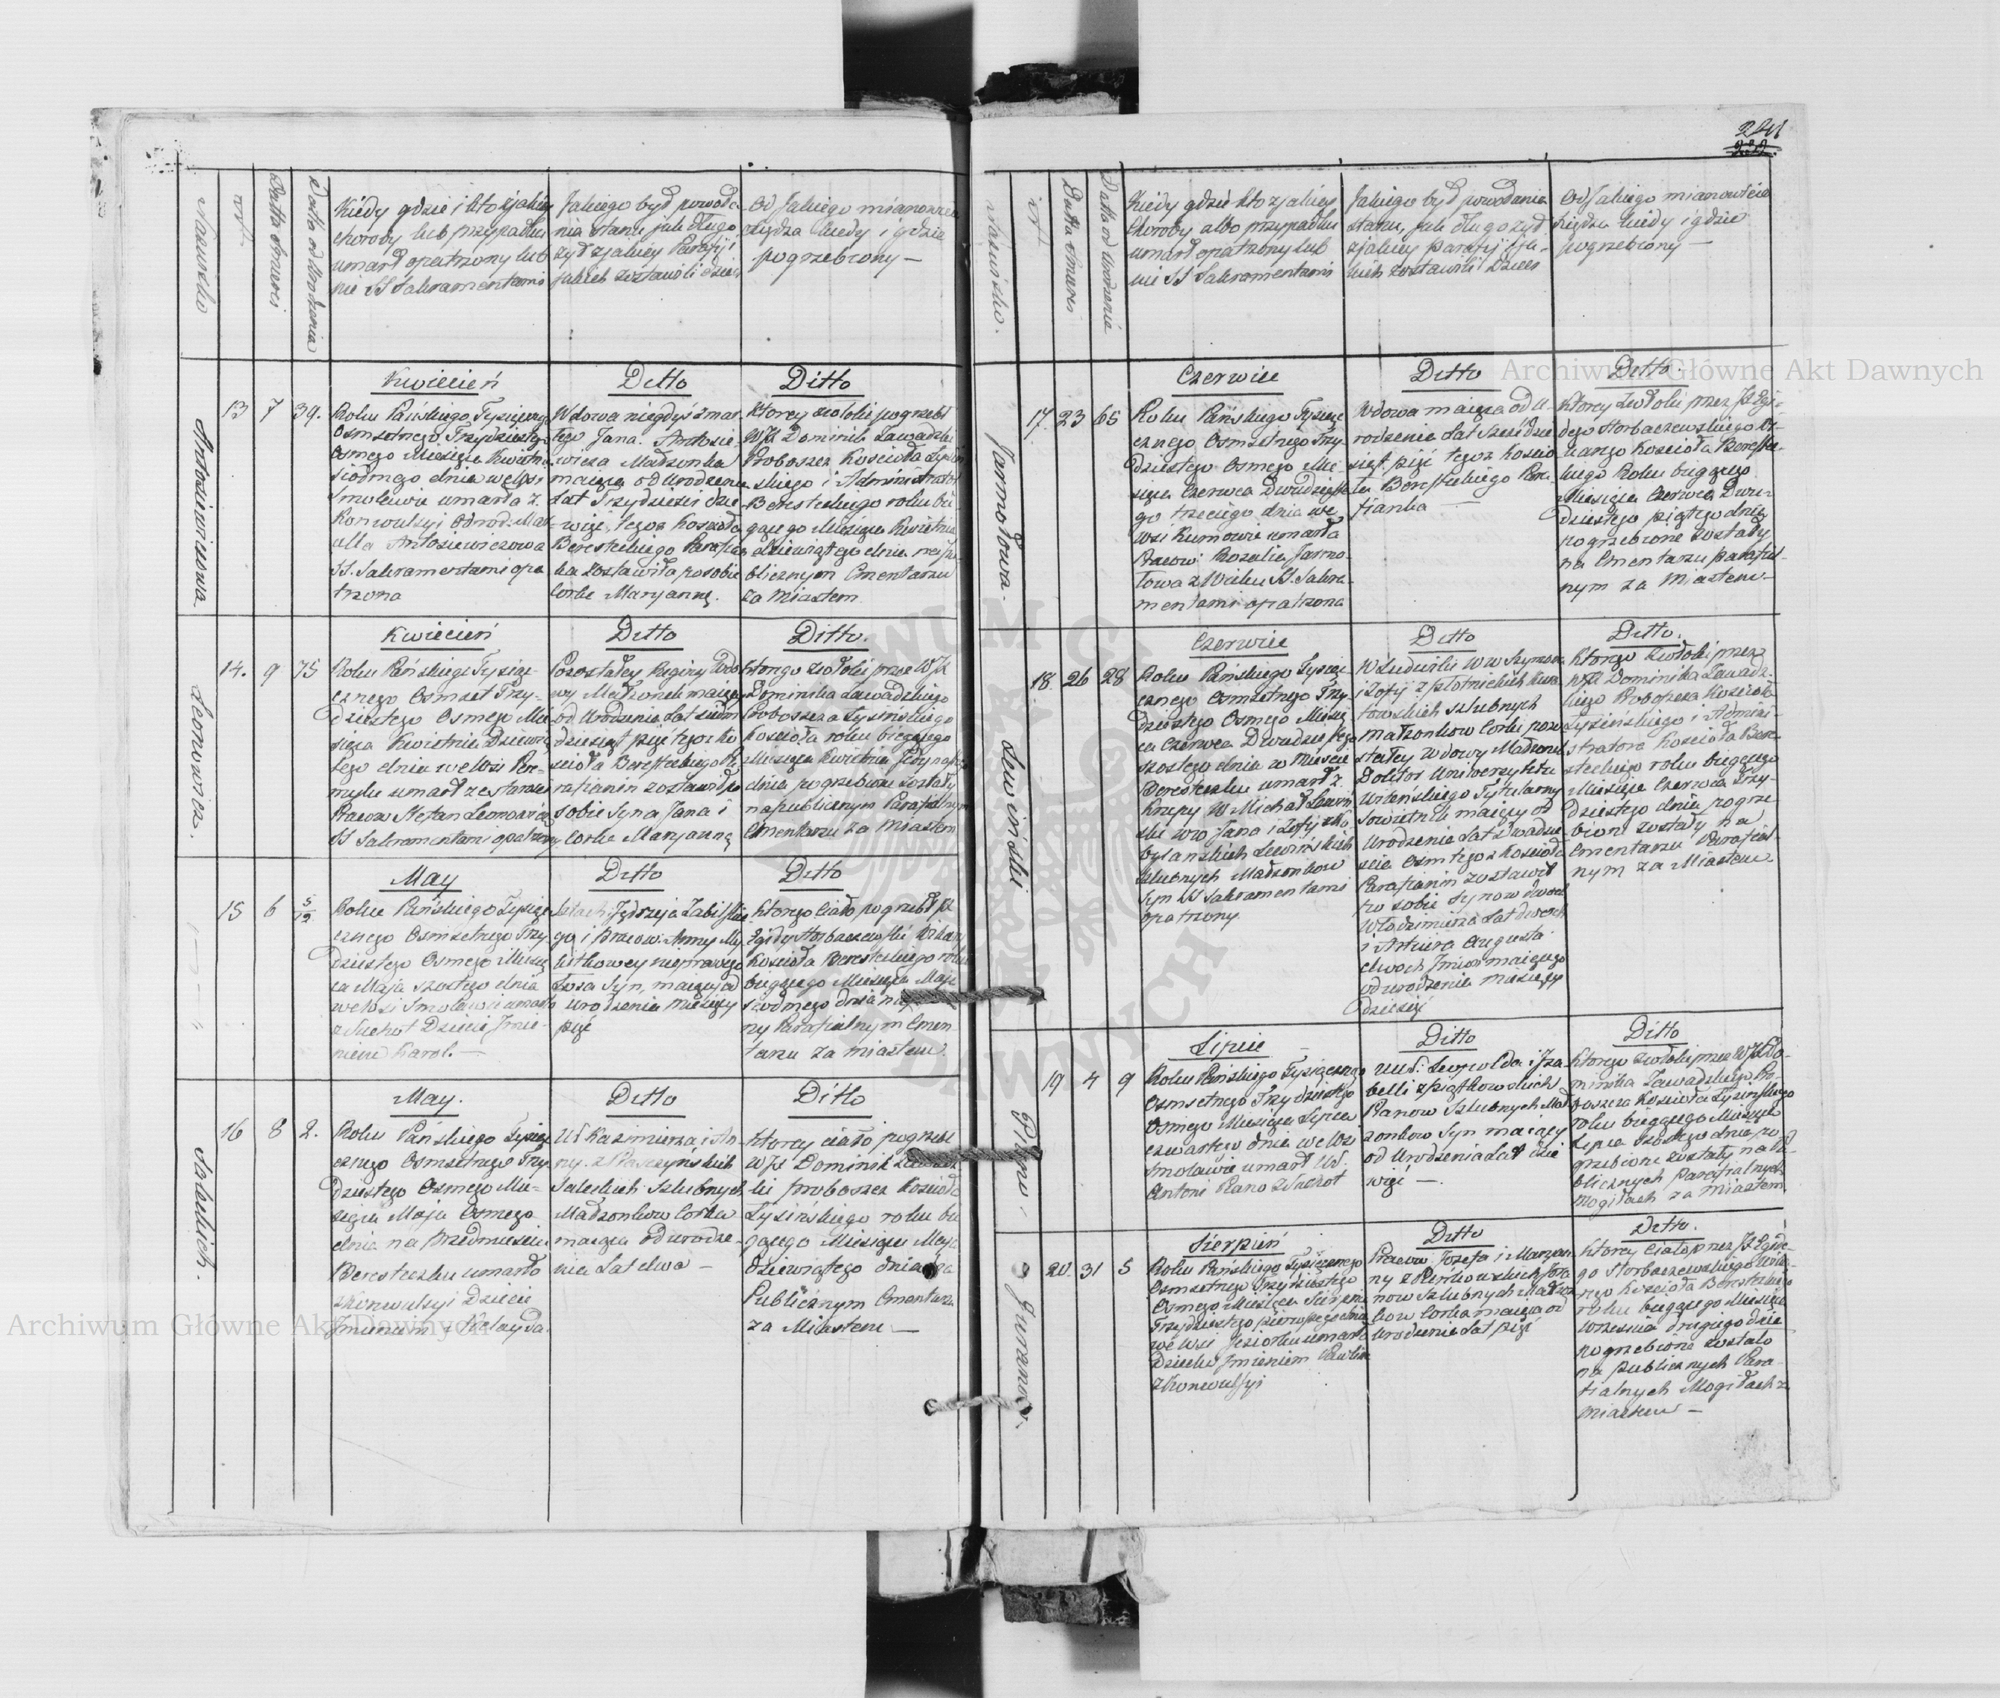 241
222
Nazwisko
Nrt
Datta śmierci
Datta od Urodzenia
Kiedy gdzie i kto zjakiey
choroby lub przypadku
umarł opatrzony lub
nie SS Sakramentami
Jakiego był powoła
nia stanu jak długo
żył zjakiey Parafij i
jakich zostawił dzieci
Od Jakiego mianowicie
Xiędza kiedy i gdzie
pogrzebiony —
Antosiewiczowa
13 7 39.
Kwiecień
Roku Pańskiego Tysiączny
Osmsetnego Trzydziestego
Osmego Miesiąca Kwietnia
siódmego dnia we Wsi
Smolawie umarła z
Konwulsyi
Antosiewiczowa
SS. Sakramentami opa
trzona
Ditto
Wdowa niegdyś zmar
łego Jana Antosie
wicza Małżonka
maiąca od Urodzenia
Lat Trzydzieści dzie
więć, tegoż Kościoła
Beresteckiego Parafian
ka zostawiła po sobie
Corke Maryannę.
Ditto
Ktorey zwłoki pogrzebł
WJX Dominik Zawadzki
Proboszcz Kościoła Łysin
skiego i Administrator
Beresteckiego roku bie
żącego Miesiąca Kwietnia
dziewiątego dnia na pu
blicznym Cmentarzu
za Miastem
Leonowicz.
14. 9 75
Kwiecień
Roku Pańskiego Tysiącz
cznego Osmset Trzy-
dziestego Osmego Mie
siąca Kwietnia Dziewią
tego dnia we Wsi Pere-
mylu umarł ze starości
Pracow Stefan Leonowicz
SS Sakramentami opatrzony
Ditto
Pozostałey Reginy Wdo
wy Małżonek maiący
od Urodzenia Lat siedm
dziesiąt pięć tegoż Ko
scioła Beresteckiego Pa
rafianin zostawił po
sobie Syna Jana i
Corke Maryannę
Ditto.
Ktorego zwłoki przez WJX
Dominika Zawadzkiego
Proboszcza Łysińskiego
Kościoła roku bieżącego
Miesiąca Kwietnia Jedynastego
dnia pogrzebione zostały
na publicznym Parafialnym
Cmentarzu za Miastem
15 6 5/12
May
Roku Pańskiego Tysiącz
cznego Osmsetnego Trzy
dziestego Osmego Miesią
ca Maja szostego dnia
we Wsi Smolawie umarło
z Suchot Dziecię Imie-
niem Karol. —
Ditto
Jędrzeja Zabilskie
go i Pracow: Anny
nieprawego
Łoża Syn, maiący od
Urodzenia miesięcy
pięć
Ditto
Ktorego Ciało pogrzebł JX
Egidy Horbaczewski Wikary
Kościoła Beresteckiego roku
bieżącego Miesiąca Maja
siodmego dnia na
ny Parafialnym Cmen-
tarzu za miastem.
Saleckich.
16 8 2.
May.
Roku Pańskiego Tysiącz
cznego Osmsetnego Trzy
dziestego Osmego Mie-
siąca Maja Osmego
dnia na Przedmieściu
Beresteczku umarło
z Konwulsyi Dziecię
Imieniem
Ditto
Ur Kazimierza i An
ny z
Saleckich Szlubnych
Małżonkow Corka
maiąca od urodze-
nia Lat dwa —
Ditto
Ktorey ciało pogrzebł
WJX Dominik Zawadz
ki proboszcz Kościoła
Łysińskiego roku bie
żącego Miesiąca Maja
dziewiątego dnia na
Publicznym Cmentarzu
za Miastem —
Nazwisko.
Nrt
Datta śmierci
Datta od Urodzenia
Kiedy gdzie kto zjakiey
Choroby albo przypadku
umarł opatrzony lub
nie SS Sakramentami
Jakiego był powołania
stanu, jak długo żył
zjakiey parafij i ja-
kich zostawił Dzieci
Od Jakiego mianowicie
Xiędza kiedy i gdzie
pogrzebiony —
Jarmołowa.
17. 23 65
Czerwiec
Roku Pańskiego Tysiącz
cznego Osmsetnego Trzy
dziestego Osmego Mie
siąca Czerwca Dwudzieste
go trzeciego dnia we
Wsi Kumowie umarła
Pracow: Rozalia Jarmo
łowa z Wieku SS. Sakra-
mentami opatrzona
Ditto
Wdowa maiąca od U-
rodzenia Lat Sześćdzie
siąt pięć tegoż Koscio
ła Beresteckiego Para-
fianka —
Ditto.
Ktorey Zwłoki przez JX Egi-
dego Horbaczewskiego Wi-
karego Kościoła Bereste-
ckiego Roku bieżącego
Miesiąca Czerwca Dwu-
dziestego piątego dnia
pogrzebione zostały
na Cmentarzu parafial-
nym za Miastem.
Lewiński
18. 26 28
Czerwiec
Roku Pańskiego Tysiącz
cznego Osmsetnego Trzy
dziestego Osmego Miesią
ca Czerwca Dwudziestego
szostego dnia w Mieście
Beresteczku umarł z
W Michał Lewiń
ski WW Jana i Zofij
Lewińskich
szlubnych Małżonkow
Syn SS Sakramentami
opatrzony
Ditto
WW Szymona
i Zofij z Płotnickich
szlubnych
małżonkow Corki pozo
stałey wdowy Małżonek
Doktor Uniwersytetu
Wileńskiego Tytularny
Sowietnik maiący od
Urodzenia Lat dwadzie
scia Osm tegoż Kościoła
Parafianin zostawił
po sobie Synow dwoch
Włodzimierza Lat dwoch
i Artura Augusta
dwoch Imion maiącego
od urodzenia miesięcy
dziesięć
Ditto.
Ktorego Zwłoki przez
WJX Dominika Zawadz-
kiego Proboszcza Kościoła
Łysińskiego i Admini-
stratora Kościoła Bere-
steckiego roku bieżącego
Miesiąca Czerwca Trzy-
dziestego dnia pogrze-
bione zostały na
Cmentarzu Parafial-
nym za Miastem
19 4 9
Lipiec
Roku Pańskiego Tysiącznego
Osmsetnego Trzydziestego
Osmego Miesiąca Lipca
czwartego dnia we Wsi
Smolawie umarł Ur.
Antoni z Suchot
Ditto
Leopolda i Iza
belli z Piątkowskich
Panow Szlubnych Mał
żonkow Syn maiący
od Urodzenia Lat dzie
więć —.
Ditto
Ktorego zwłoki przez WJX Do-
minika Zawadzkiego Pro-
boszcza Kościoła Łysińskiego
roku bieżącego Miesiąca
Lipca szostego dnia po
grzebione zostały na pu-
blicznych Parafialnych
Mogiłach za miastem
20. 31 5
Sierpień
Roku Pańskiego Tysiącznego
Osmsetnego Trzydziestego
Osmego Miesiąca Sierpnia
Trzydziestego pierwszego dnia
we Wsi Jeziorku umarła
Dziecko Imieniem Paulina
z Konwulsyi
Ditto
Pracow: Jozefa i Maryan
ny z
Szlubnych Małżon
kow Corka maiąca od
Urodzenia Lat pięć
Ditto.
Ktorey Ciało przez JX Egide-
go Horbaczewskiego Wika-
rego Kościoła Beresteckiego
roku bieżącego Miesiąca
Września drugiego dnia
pogrzebione zostało
na publicznych Para-
fialnych Mogiłach za
Miastem —
Archiwum Główne Akt Dawnych
Archiwum Główne Akt Dawnych